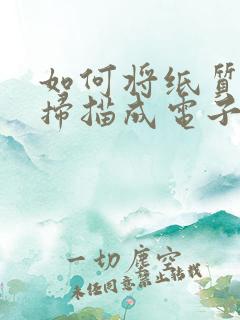 如何将纸質
掃描成電子
一切塵空
未经同意禁止转载